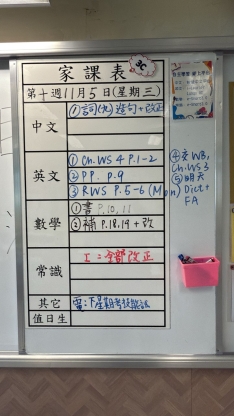 家課表
第十週11月5日(星期三)
中文
①詞(九)造句+改正
英文
①Ch.WS 4 P.1-2
②P.P. p.9
③RWS P.5-6 (Mon)
④交WB,
Ch.WS3
⑤明天
Dict+
FA
數學
①書P.10, 11
②補P.18,19+改
常識
I:全部改正
其它
電:下星期考
值日生